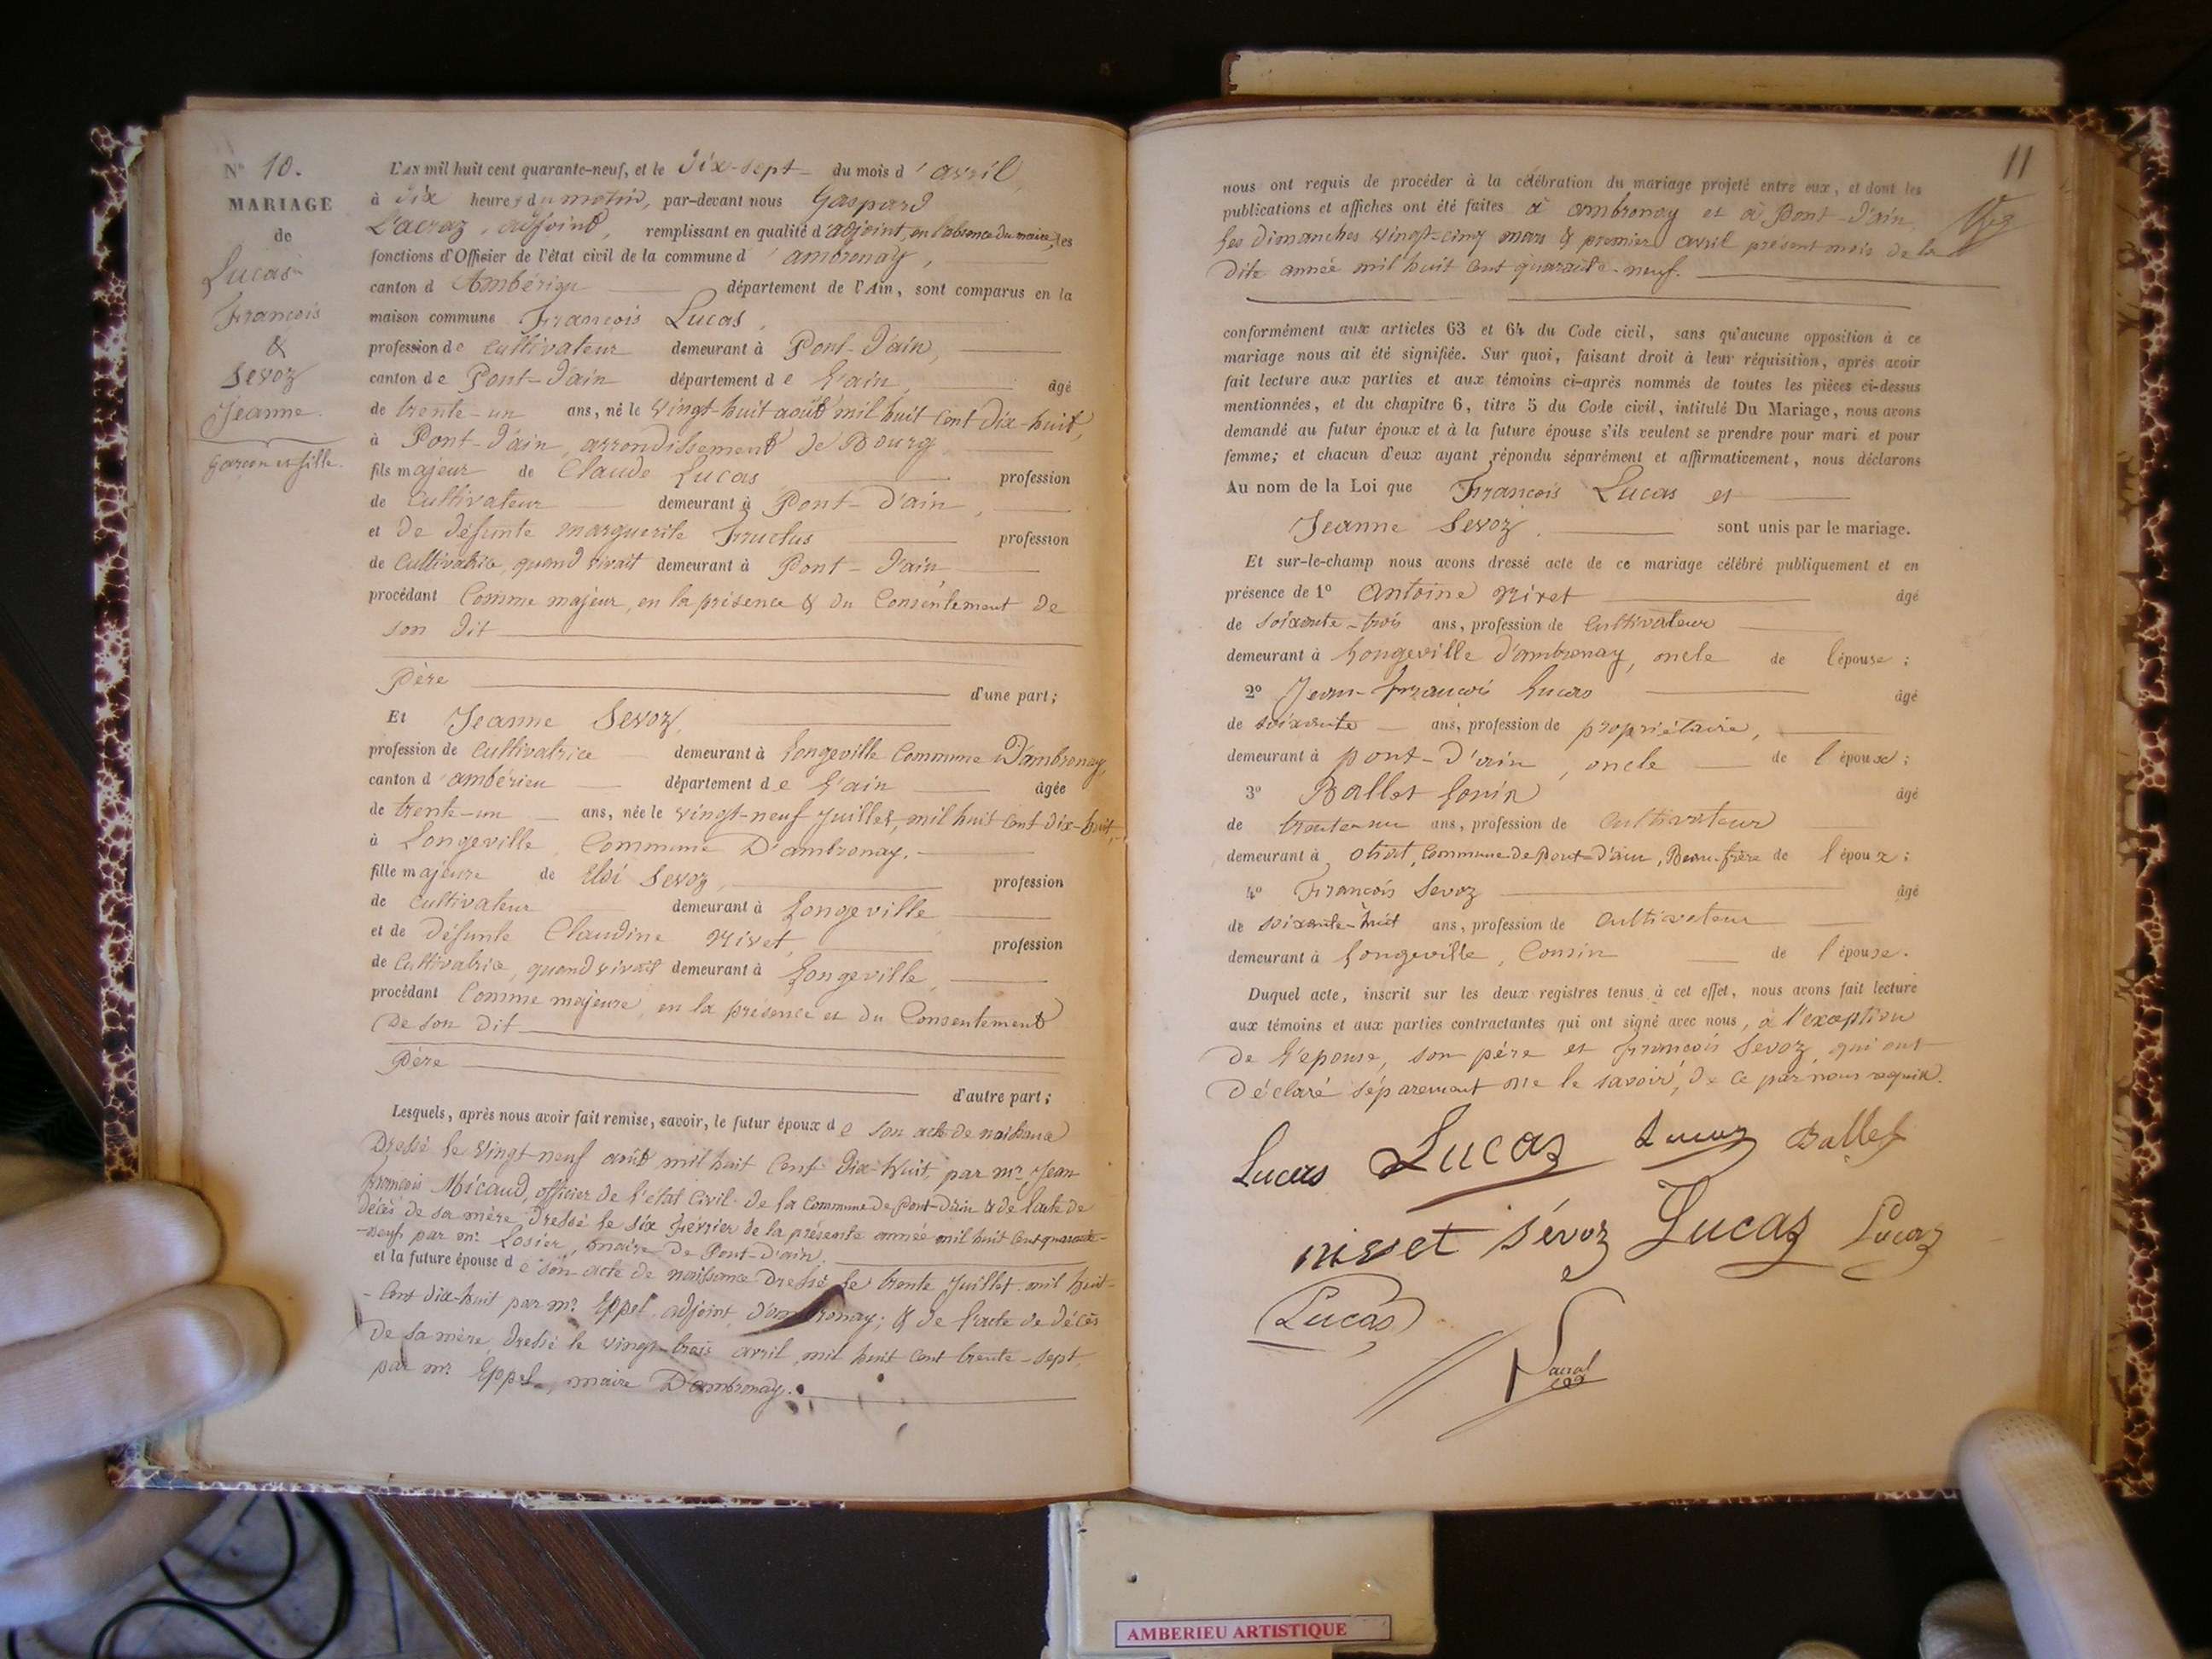 N° 10.
MARIAGE
de
Lucas
François
&
Sevoz
Jeanne.
garçon et fille.
L'AN mil huit cent quarante-neuf, et le dix-sept du mois d'avril,
à dix heures du matin, par-devant nous Gaspard
Lacraz, adjoint, remplissant en qualité d'adjoint, en l'absence du maire, les
fonctions d'Officier de l'état civil de la commune d'ambronay,
canton d Ambérieu département de l'Ain, sont comparus en la
maison commune François Lucas,
profession de cultivateur demeurant à Pont-d'ain,
canton de Pont-d'ain département de l'ain, âgé
de trente-un ans, né le vingt-huit août mil huit cent dix-huit,
à Pont-d'ain, arrondissement de Bourg,
fils majeur de Claude Lucas profession
de cultivateur demeurant à Pont-d'ain,
et de défunte marguerite Fructus profession
de cultivatrice, quand vivait demeurant à Pont-d'ain
procédant comme majeur, en la présence & du Consentement de
son dit
Père d'une part;
Et Jeanne Sevoz,
profession de cultivatrice demeurant à Longeville Commune D'ambronay,
canton d'ambérieu département de l'ain âgée
de trente-un ans, née le vingt-neuf Juillet, mil huit cent dix-huit,
à Longeville, Commune D'ambronay.
fille majeure de Eloi Sevoz, profession
de cultivateur demeurant à Longeville
et de défunte Claudine Nivet, profession
de cultivatrice, quand vivait demeurant à Longeville,
procédant comme majeure, en la présence et du Consentement
De son dit
Père
d'autre part;
Lesquels, après nous avoir fait remise, savoir, le futur époux de son acte de naissance
Dressé le vingt-neuf août mil huit cent dix-huit, par mr Jean
françois Micaud, officier de l'état civil de la commune de Pont-d'ain & de l'acte de
décès de sa mère, dressé le six février de la présente année mil huit cent quarante-
-neuf, par mr Losier, maire de Pont-d'ain.
et la future épouse de son acte de naissance dressé le trente Juillet mil huit-
-cent dix-huit par mr Eppel adjoint d'ambronay; & de l'acte de décès
De sa mère, dressé le vingt-trois avril, mil huit cent trente-sept,
par mr Eppel, maire D'ambronay.
11
nous ont requis de procéder à la célébration du mariage projeté entre eux, et dont les
publications et affiches ont été faites à ambronay et à Pont-d'ain,
les dimanches vingt-cinq mars & premier avril présent mois de la
dite année mil huit cent quarante-neuf.
conformément aux articles 63 et 64 du Code civil, sans qu'aucune opposition à ce
mariage nous ait été signifiée. Sur quoi, faisant droit à leur réquisition, après avoir
fait lecture aux parties et aux témoins ci-après nommés de toutes les pièces ci-dessus
mentionnées, et du chapitre 6, titre 5 du Code civil, intitulé Du Mariage, nous avons
demandé au futur époux et à la future épouse s'ils veulent se prendre pour mari et pour
femme; et chacun d'eux ayant répondu séparément et affirmativement, nous déclarons
Au nom de la Loi que François Lucas et
Jeanne Sevoz. sont unis par le mariage.
Et sur-le-champ nous avons dressé acte de ce mariage célébré publiquement et en
présence de 1° Antoine Nivet âgé
de soixante-trois ans, profession de cultivateur
demeurant à Longeville d'ambronay, oncle de l'épouse;
2° Jean-françois Lucas âgé
de soixante ans, profession de propriétaire,
demeurant à pont-d'ain, oncle de l'époux;
3° Ballet Louis âgé
de trente-un ans, profession de cultivateur
demeurant à Oriat, Commune de Pont-d'ain, Beau-frère de l'époux;
4° François Sevoz âgé
de soixante-huit ans, profession de cultivateur
demeurant à Longeville, Cousin de l'épouse.
Duquel acte, inscrit sur les deux registres tenus à cet effet, nous avons fait lecture
aux témoins et aux parties contractantes qui ont signé avec nous, à l'exception
De l'épouse, son père et françois Sevoz, qui ont
Déclaré séparement ne le savoir, de ce par nous requis.
Lucas Lucas Lucas Ballet
nivet sévoz Lucas Lucas
Lucas